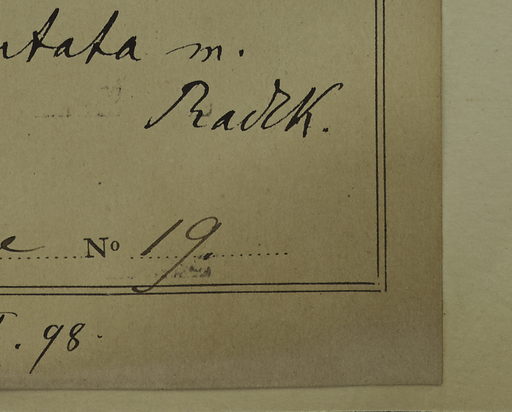 ntata m.
Radlk.
e Nº 19.
. 98.